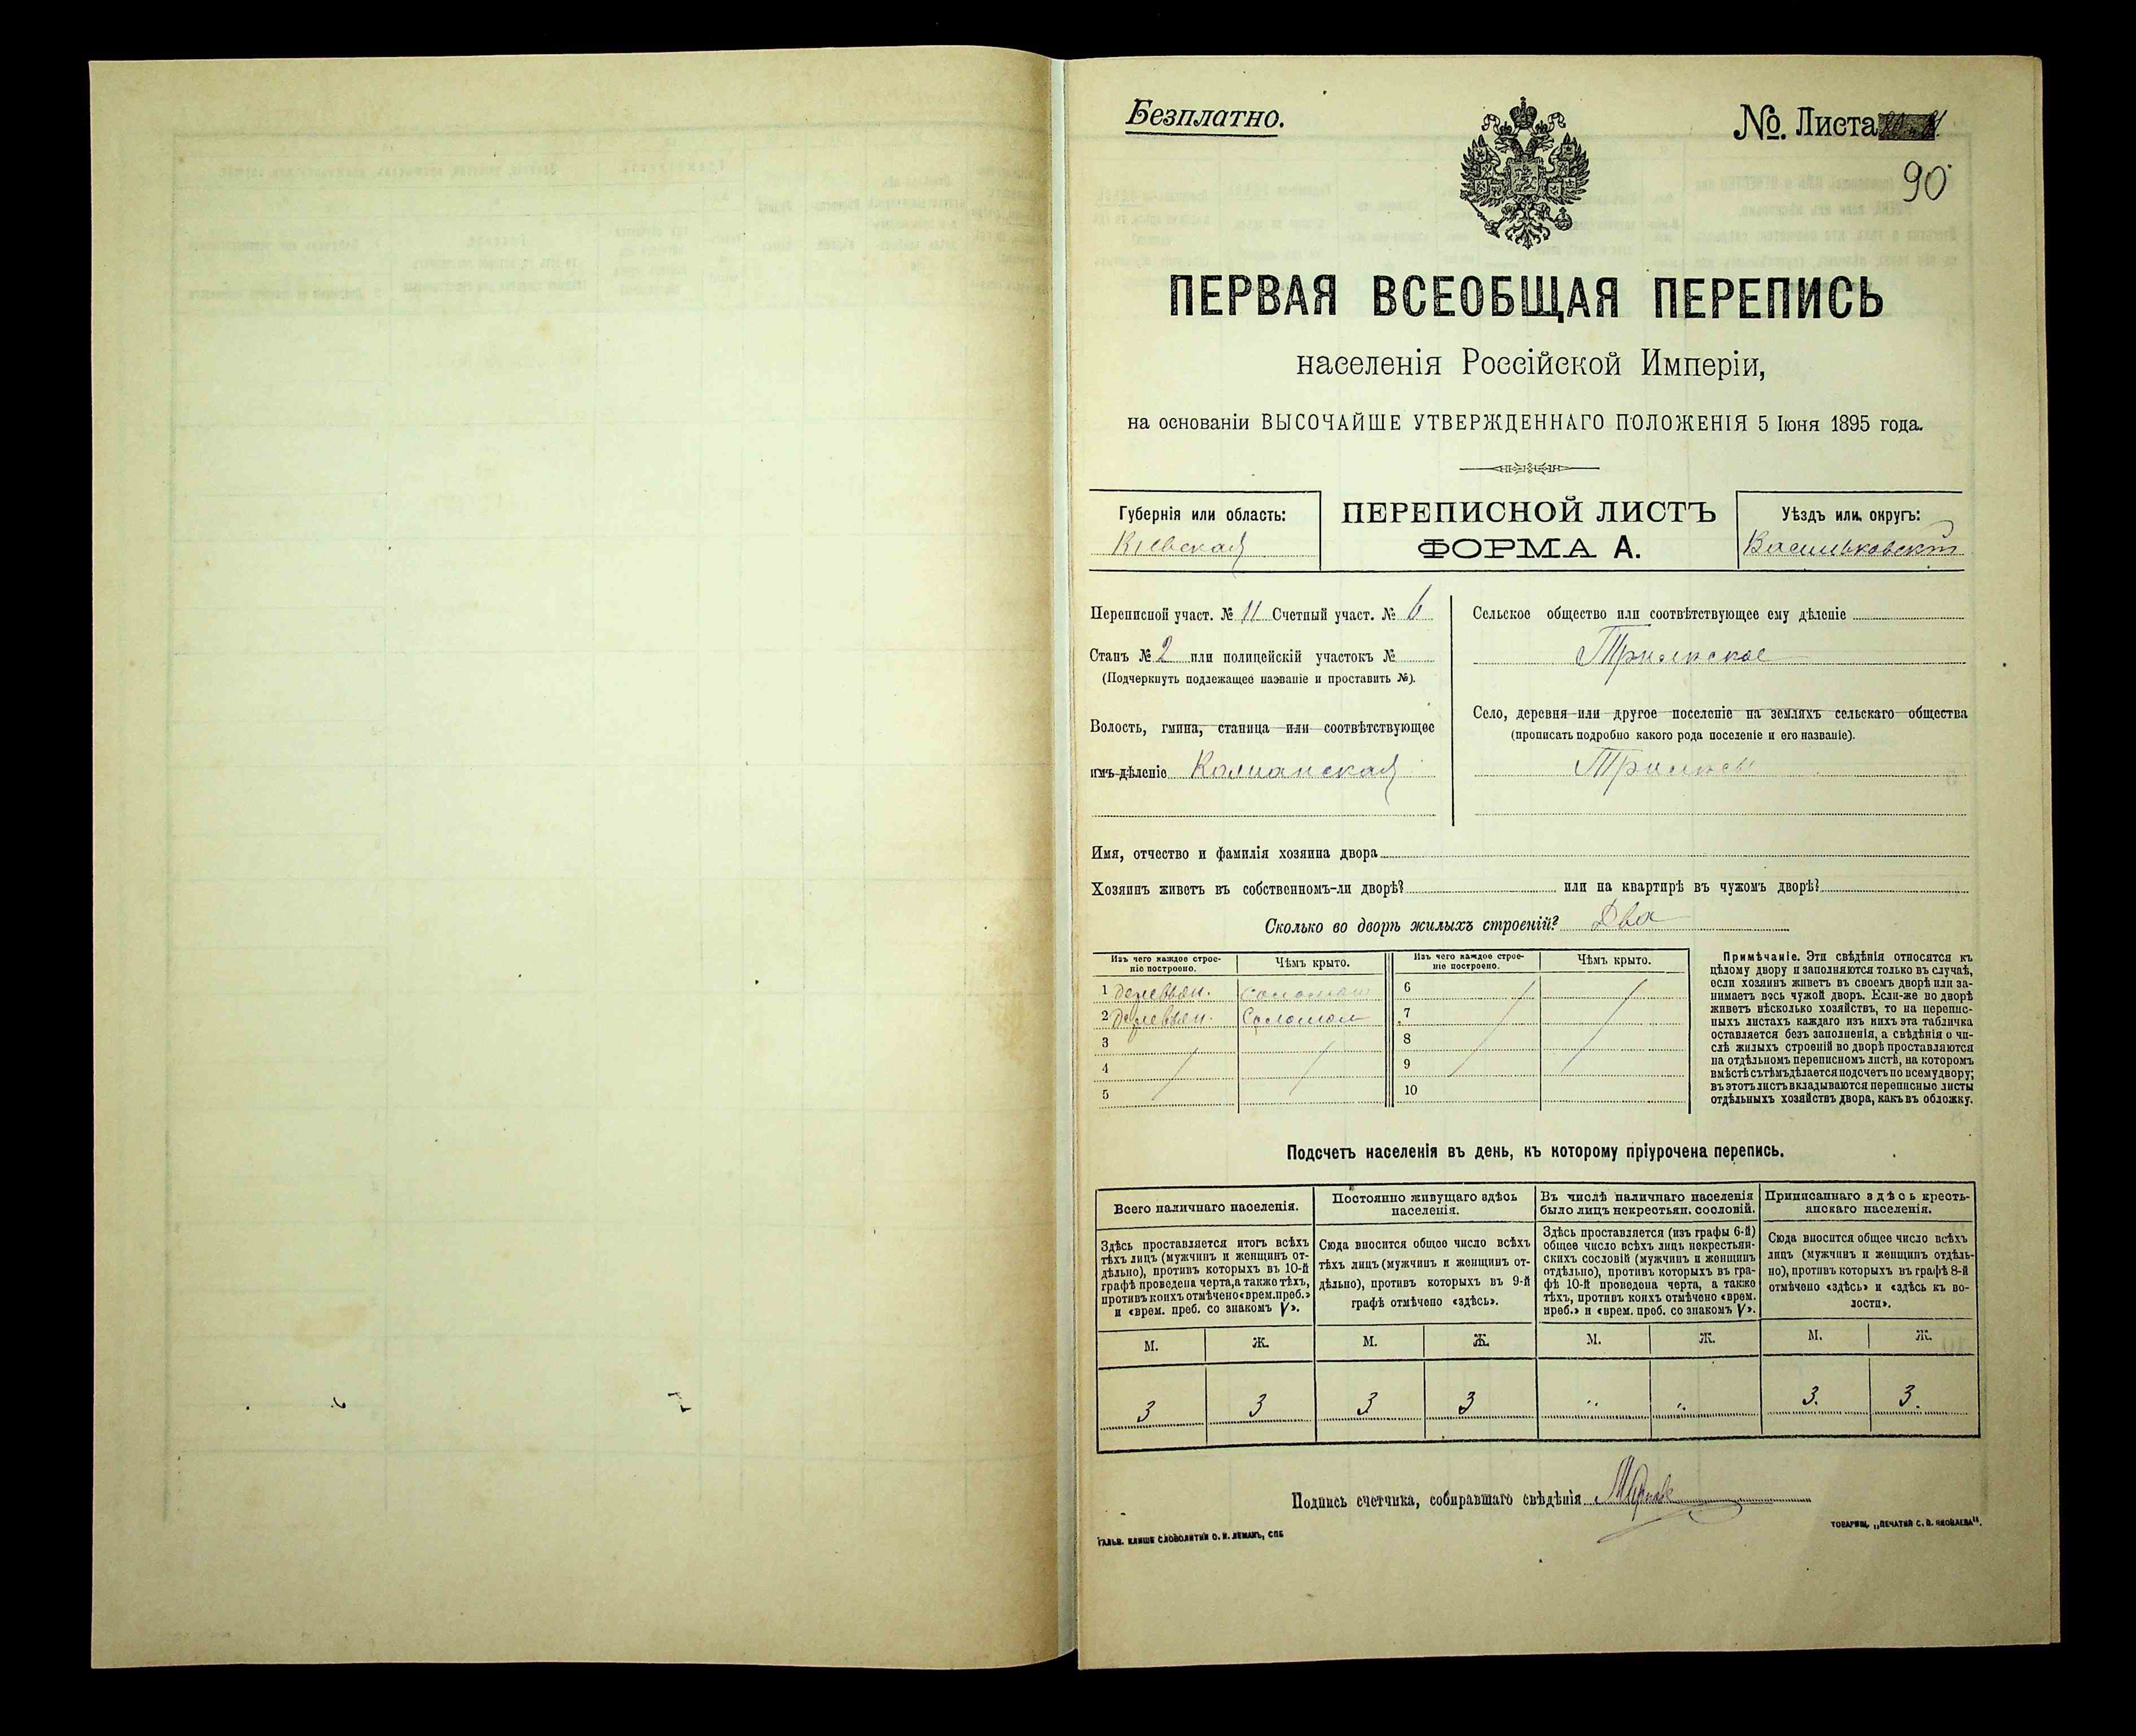 Безплатно.
№. Листа
90
ПЕРВАЯ ВСЕОБЩАЯ ПЕРЕПИСЬ
населенія Россійской Имперіи,
на основаніи ВЫСОЧАЙШЕ УТВЕРЖДЕННАГО ПОЛОЖЕНІЯ 5 Іюня 1895 года.
Губернія или область:
Кіевская
ПЕРЕПИСНОЙ ЛИСТЪ
ФОРМА А.
Уѣздъ или округъ:
Васильковскій
Переписной участ. № 11 Счетный участ. № 6
Станъ № 2 или полицейскій участокъ №
(Подчеркнуть подлежащее названіе и проставить №).
Волость, гмина, станица или соотвѣтствующее
имъ дѣленіе
Сельское общество или соотвѣтствующее ему дѣленіе
Трилисское
Село, деревня или другое поселеніе на земляхъ сельскаго общества
(прописать подробно какого рода поселеніе и его названіе).
Трилисы
Имя, отчество и фамилія хозяина двора
Хозяинъ живетъ въ собственномъ-ли дворѣ? или на квартирѣ въ чужомъ дворѣ?
Сколько во дворѣ жилыхъ строеній? Два
Изъ чего каждое строе-
ніе построено.
Чѣмъ крыто.
Изъ чего каждое строе-
ніе построено.
Чѣмъ крыто.
1 деревян. соломой 6
2 деревян. Соломой 7
3 8
4 9
5 10
Примѣчаніе. Эти свѣдѣнія относятся къ
цѣлому двору и заполняются только въ случаѣ,
если хозяинъ живетъ въ своемъ дворѣ или за-
нимаетъ весь чужой дворъ. Если-же во дворѣ
живетъ нѣсколько хозяйствъ, то на перепис-
ныхъ листахъ каждаго изъ нихъ эта табличка
оставляется безъ заполненія, а свѣдѣнія о чи-
слѣ жилыхъ строеній во дворѣ проставляются
на отдѣльномъ переписномъ листѣ, на которомъ
вмѣстѣ съ тѣмъ дѣлается подсчетъ по всему двору;
въ этотъ листъ вкладываются переписные листы
отдѣльныхъ хозяйствъ двора, какъ въ обложку.
Подсчетъ населенія въ день, къ которому пріурочена перепись.
Всего наличнаго населенія.
Здѣсь проставляется итогъ всѣхъ
тѣхъ лицъ (мужчинъ и женщинъ от-
дѣльно), противъ которыхъ въ 10-й
графѣ проведена черта, а также тѣхъ,
противъ коихъ отмѣчено «врем. преб.»
и «врем. преб. со знакомъ V».
Постоянно живущаго здѣсь
населенія.
Сюда вносится общее число всѣхъ
тѣхъ лицъ (мужчинъ и женщинъ от-
дѣльно), противъ которыхъ въ 9-й
графѣ отмѣчено «здѣсь».
Въ числѣ наличнаго населенія
было лицъ некрестьян. сословій.
Здѣсь проставляется (изъ графы 6-й)
общее число всѣхъ лицъ некрестьян-
скихъ сословій (мужчинъ и женщинъ
отдѣльно), противъ которыхъ въ гра-
фѣ 10-й проведена черта, а также
тѣхъ, противъ коихъ отмѣчено «врем.
преб.» и «врем. преб. со знакомъ V».
Приписаннаго здѣсь кресть-
янскаго населенія.
Сюда вносится общее число всѣхъ
лицъ (мужчинъ и женщинъ отдѣль-
но), противъ которыхъ въ графѣ 8-й
отмѣчено «здѣсь» и «здѣсь къ во-
лости».
М. Ж. М. Ж. М. Ж. М. Ж.
3 3 3 3 " " 3. 3.
Подпись счетчика, собиравшаго свѣдѣнія
ГАЛЬВ. КЛИШЕ СЛОВОЛИТНИ О. И. ЛЕМАНЪ, СПБ
ТОВАРИЩ. „ПЕЧАТНЯ С. П. ЯКОВЛЕВА“.